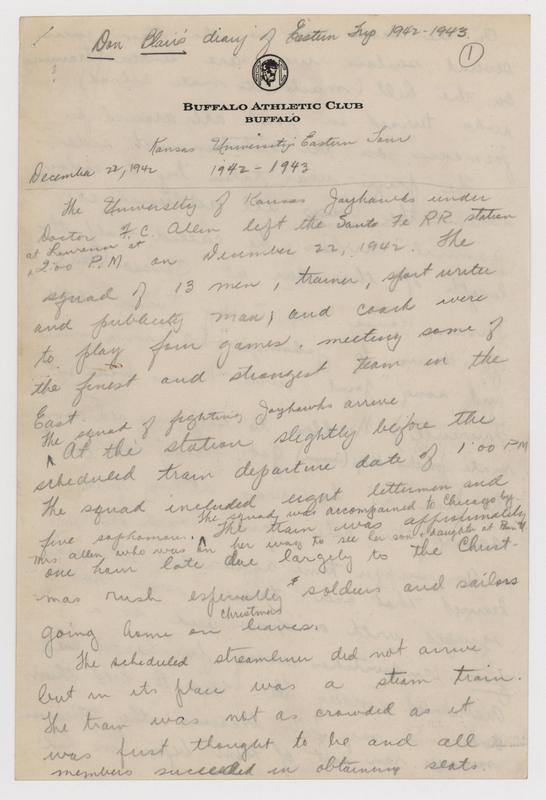 Don Blair's diary of Eastern Trip 1942-1943.
1
BUFFALO ATHLETIC CLUB
BUFFALO
Kansas University's Eastern Tour
December 22, 1942 1942-1943
The University of Kansas Jayhawks under
Doctor F. C. Allen left the Santa Fe RR station
at Lawrence at
2:00 P.M on December 22, 1942. The
squad of 13 men, trainer, sport writer
and publicity man; and coach were
to play four games, meeting some of
the finest and strongest team in the
East.
The squad of fighting Jayhawks arrive
At the station slightly before the
scheduled train departure date of 1:00 PM
The squad included eight lettermen and
The squad was accompained to Chicago by
five sophomores. The train was approximately
Mrs Allen, who was on her way to see her son & daughter at
one hour late due largely to the Christ-
mas rush especially soldiers and sailors
Christmas
going home on leaves.
The scheduled streamliner did not arrive
but in its place was a steam train.
The train was not as crowded as it
was first thought to be and all
members succeeded in obtaining seats.